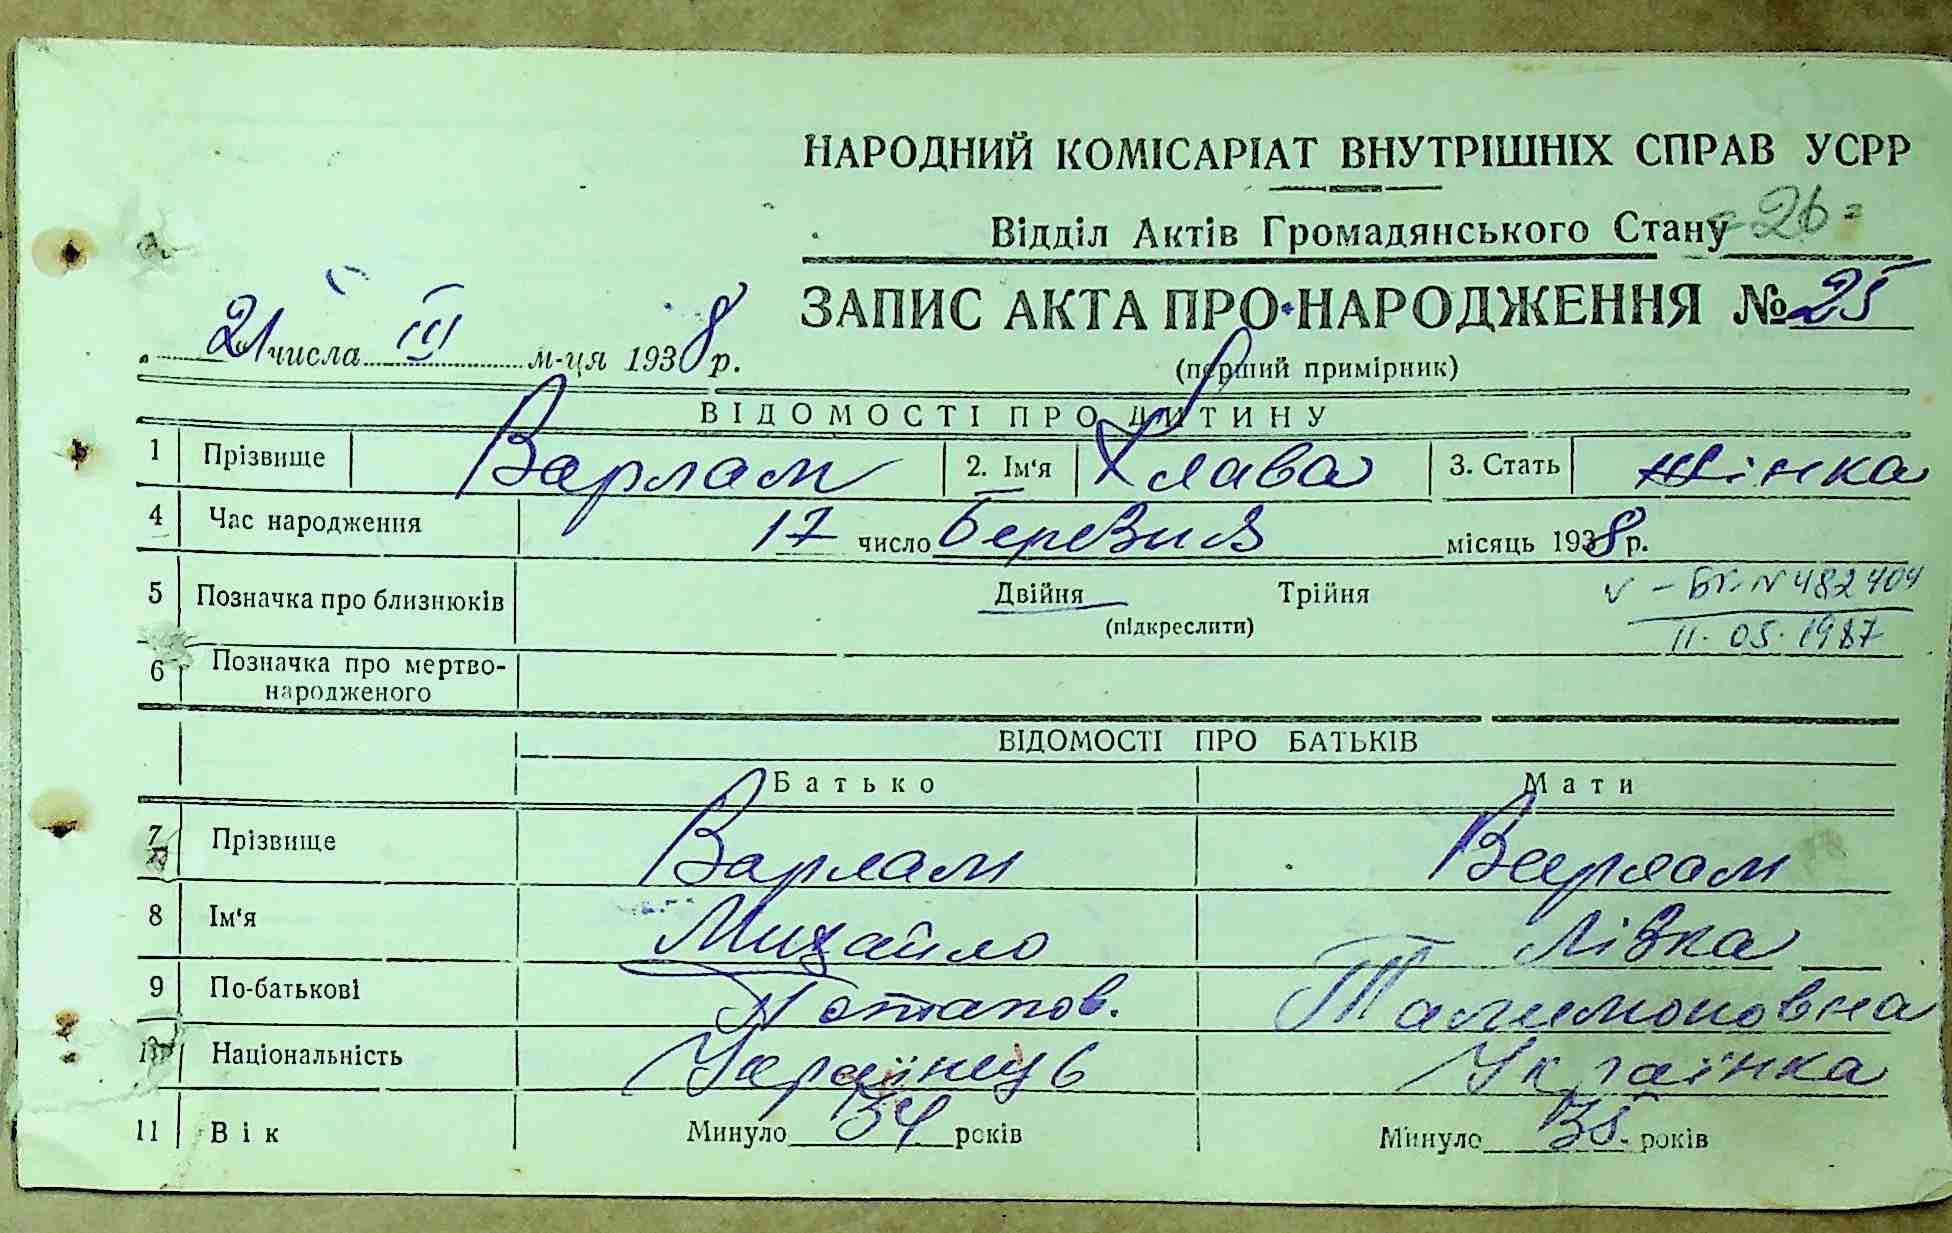 НАРОДНИЙ КОМІСАРІАТ ВНУТРІШНІХ СПРАВ УСРР
Відділ Актів Громадянського Стану
= 26 =
ЗАПИС АКТА ПРО НАРОДЖЕННЯ № 25
21 числа III м-ця 1938 р.
(перший примірник)
ВІДОМОСТІ ПРО ДИТИНУ
1 Прізвище Варлам 2. Ім'я Клава 3. Стать Жінка
4 Час народження 17 число Березня місяць 1938 р.
5 Позначка про близнюків Двійня Трійня
(підкреслити)
v - N 482404
11.05.1987
6 Позначка про мертво-
народженого
ВІДОМОСТІ ПРО БАТЬКІВ
Батько Мати
7 Прізвище Варлам Варлам
8 Ім'я Михайло Лівка
9 По-батькові Потапов. Талимоновна
10 Національність Українець Українка
11 Вік Минуло 34 років Минуло 35 років